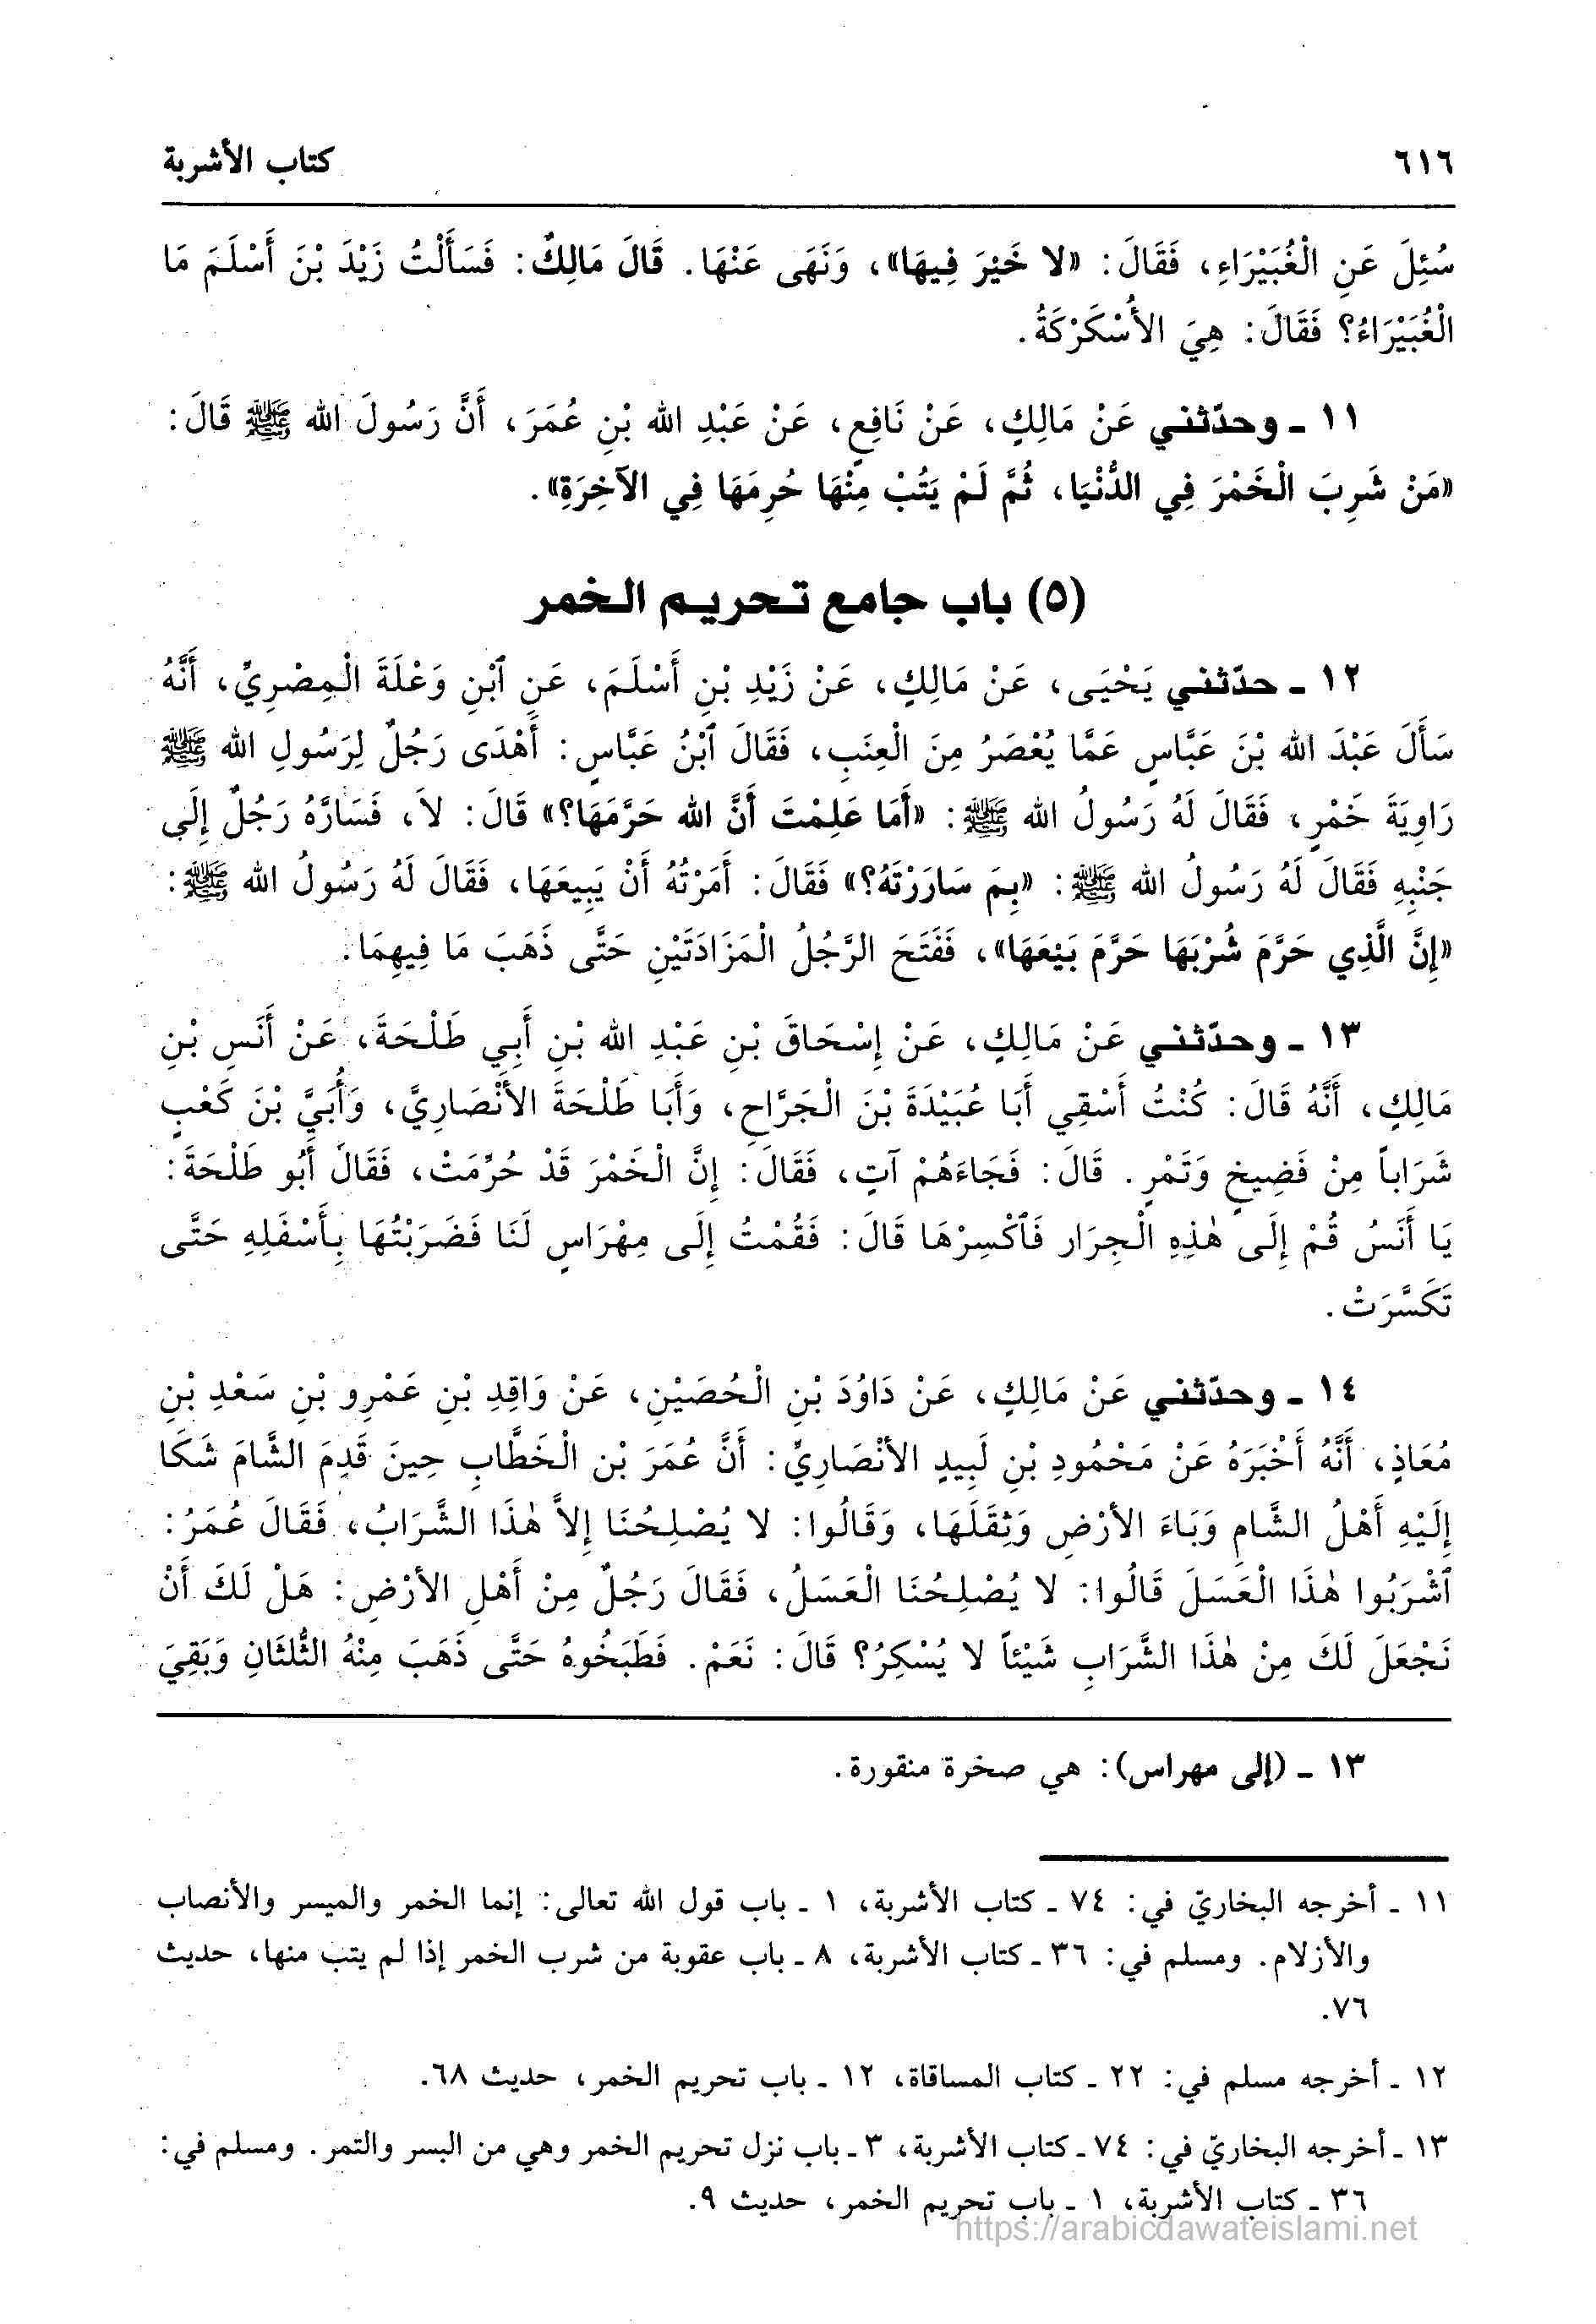 ٦١٦ كتاب الأشربة
سُئِلَ عَنِ الْغُبَيْرَاءِ، فَقَالَ: «لا خَيْرَ فِيهَا»، وَنَهَى عَنْهَا. قَالَ مَالِكٌ: فَسَأَلْتُ زَيْدَ بْنَ أَسْلَمَ مَا
الْغُبَيْرَاءُ؟ فَقَالَ: هِيَ الأُسْكَرْكَةُ.
١١ ـ وحدّثني عَنْ مَالِكٍ، عَنْ نَافِعٍ، عَنْ عَبْدِ الله بْنِ عُمَرَ، أَنَّ رَسُولَ الله ﷺ قَالَ:
«مَنْ شَرِبَ الْخَمْرَ فِي الدُّنْيَا، ثُمَّ لَمْ يَتُبْ مِنْهَا حُرِمَهَا فِي الآخِرَةِ».
(٥) باب جامع تحريم الخمر
١٢ ـ حدّثني يَحْيَى، عَنْ مَالِكٍ، عَنْ زَيْدِ بْنِ أَسْلَمَ، عَنِ ٱبْنِ وَعْلَةَ الْمِصْرِيِّ، أَنَّهُ
سَأَلَ عَبْدَ الله بْنَ عَبَّاسٍ عَمَّا يُعْصَرُ مِنَ الْعِنَبِ، فَقَالَ ٱبْنُ عَبَّاسٍ: أَهْدَى رَجُلٌ لِرَسُولِ الله ﷺ
رَاوِيَةَ خَمْرٍ، فَقَالَ لَهُ رَسُولُ الله ﷺ: «أَمَا عَلِمْتَ أَنَّ الله حَرَّمَهَا؟» قَالَ: لاَ، فَسَارَّهُ رَجُلٌ إِلَى
جَنْبِهِ فَقَالَ لَهُ رَسُولُ الله ﷺ: «بِمَ سَارَرْتَهُ؟» فَقَالَ: أَمَرْتُهُ أَنْ يَبِيعَهَا، فَقَالَ لَهُ رَسُولُ الله ﷺ:
«إِنَّ الَّذِي حَرَّمَ شُرْبَهَا حَرَّمَ بَيْعَهَا»، فَفَتَحَ الرَّجُلُ الْمَزَادَتَيْنِ حَتَّى ذَهَبَ مَا فِيهِمَا.
١٣ ـ وحدّثني عَنْ مَالِكٍ، عَنْ إِسْحَاقَ بْنِ عَبْدِ الله بْنِ أَبِي طَلْحَةَ، عَنْ أَنَسِ بْنِ
مَالِكٍ، أَنَّهُ قَالَ: كُنْتُ أَسْقِي أَبَا عُبَيْدَةَ بْنَ الْجَرَّاحِ، وَأَبَا طَلْحَةَ الأنْصَارِيَّ، وَأُبَيَّ بْنَ كَعْبٍ
شَرَاباً مِنْ فَضِيخٍ وَتَمْرٍ. قَالَ: فَجَاءَهُمْ آتٍ، فَقَالَ: إِنَّ الْخَمْرَ قَدْ حُرِّمَتْ، فَقَالَ أَبُو طَلْحَةَ:
يَا أَنَسُ قُمْ إِلَى هٰذِهِ الْجِرَار فَٱكْسِرْهَا قَالَ: فَقُمْتُ إِلَى مِهْرَاسٍ لَنَا فَضَرَبْتُهَا بِأَسْفَلِهِ حَتَّى
تَكَسَّرَتْ.
١٤ ـ وحدّثني عَنْ مَالِكٍ، عَنْ دَاوُدَ بْنِ الْحُصَيْنِ، عَنْ وَاقِدِ بْنِ عَمْرِو بْنِ سَعْدِ بْنِ
مُعَاذٍ، أَنَّهُ أَخْبَرَهُ عَنْ مَحْمُودِ بْنِ لَبِيدٍ الأنْصَارِيِّ: أَنَّ عُمَرَ بْن الْخَطَّابِ حِينَ قَدِمَ الشَّامَ شَكَا
إِلَيْهِ أَهْلُ الشَّامِ وَبَاءَ الأرْضِ وَثِقَلَهَا، وَقَالُوا: لا يُصْلِحُنَا إِلاَّ هٰذَا الشَّرَابُ، فَقَالَ عُمَرُ:
ٱشْرَبُوا هٰذَا الْعَسَلَ قَالُوا: لا يُصْلِحُنَا الْعَسَلُ، فَقَالَ رَجُلٌ مِنْ أَهْلِ الأرْضِ: هَلْ لَكَ أَنْ
نَجْعَلَ لَكَ مِنْ هٰذَا الشَّرَابِ شَيْئاً لا يُسْكِرُ؟ قَالَ: نَعَمْ. فَطَبَخُوهُ حَتَّى ذَهَبَ مِنْهُ الثُّلثَانِ وَبَقِيَ
١٣ ـ (إلى مهراس): هي صخرة منقورة.
١١ ـ أخرجه البخاريّ في: ٧٤ ـ كتاب الأشربة، ١ ـ باب قول الله تعالى: إنما الخمر والميسر والأنصاب
والأزلام. ومسلم في: ٣٦ ـ كتاب الأشربة، ٨ ـ باب عقوبة من شرب الخمر إذا لم يتب منها، حديث
٧٦.
١٢ ـ أخرجه مسلم في: ٢٢ ـ كتاب المساقاة، ١٢ ـ باب تحريم الخمر، حديث ٦٨.
١٣ ـ أخرجه البخاريّ في: ٧٤ ـ كتاب الأشربة، ٣ ـ باب نزل تحريم الخمر وهي من البسر والتمر. ومسلم في:
٣٦ ـ كتاب الأشربة، ١ ـ باب تحريم الخمر، حديث ٩.
https://arabicdawateislami.net